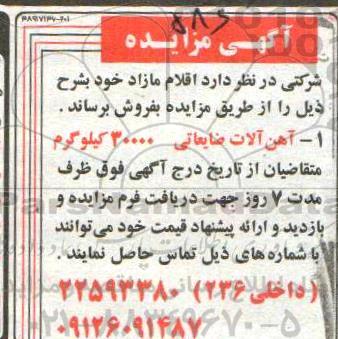 ۴۸۹۱۷۱۴۷۰۲۰۱
آگهی مزایده
شرکتی در نظر دارد اقلام مازاد خود بشرح
ذیل را از طریق مزایده بفروش برساند .
۱- آهن آلات ضایعاتی ۳۰۰۰۰ کیلوگرم
متقاضیان از تاریخ درج آگهی فوق ظرف
مدت ۷ روز جهت دریافت فرم مزایده و
بازدید و ارائه پیشنهاد قیمت خود می‌توانند
با شماره های ذیل تماس حاصل نمایند .
۲۲۵۹۳۳۸۰ (داخلی ۲۳۶)
۰۹۱۲۶۰۹۱۴۸۷
۰۲۱-۸۸۳۴۹۶۷۰-۵